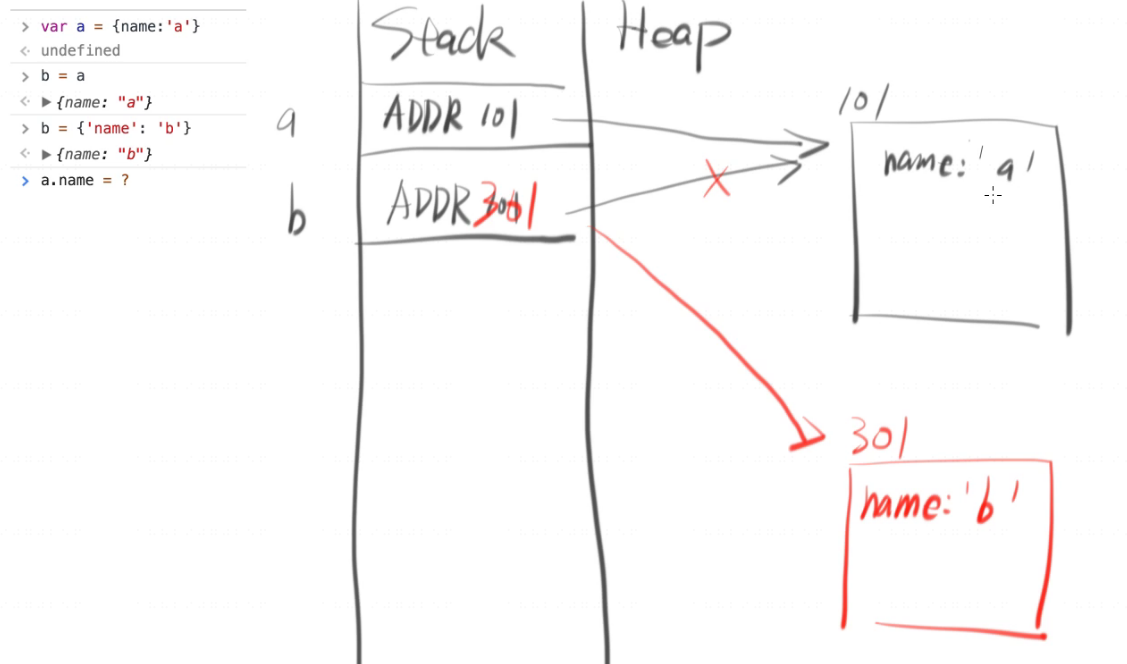 > var a = {name:'a'}
undefined
> b = a
▶{name: "a"}
> b = {'name': 'b'}
▶{name: "b"}
> a.name = ?
Stack
Heap
a
ADDR 101
101
name: 'a'
b
ADDR 301
301
name: 'b'